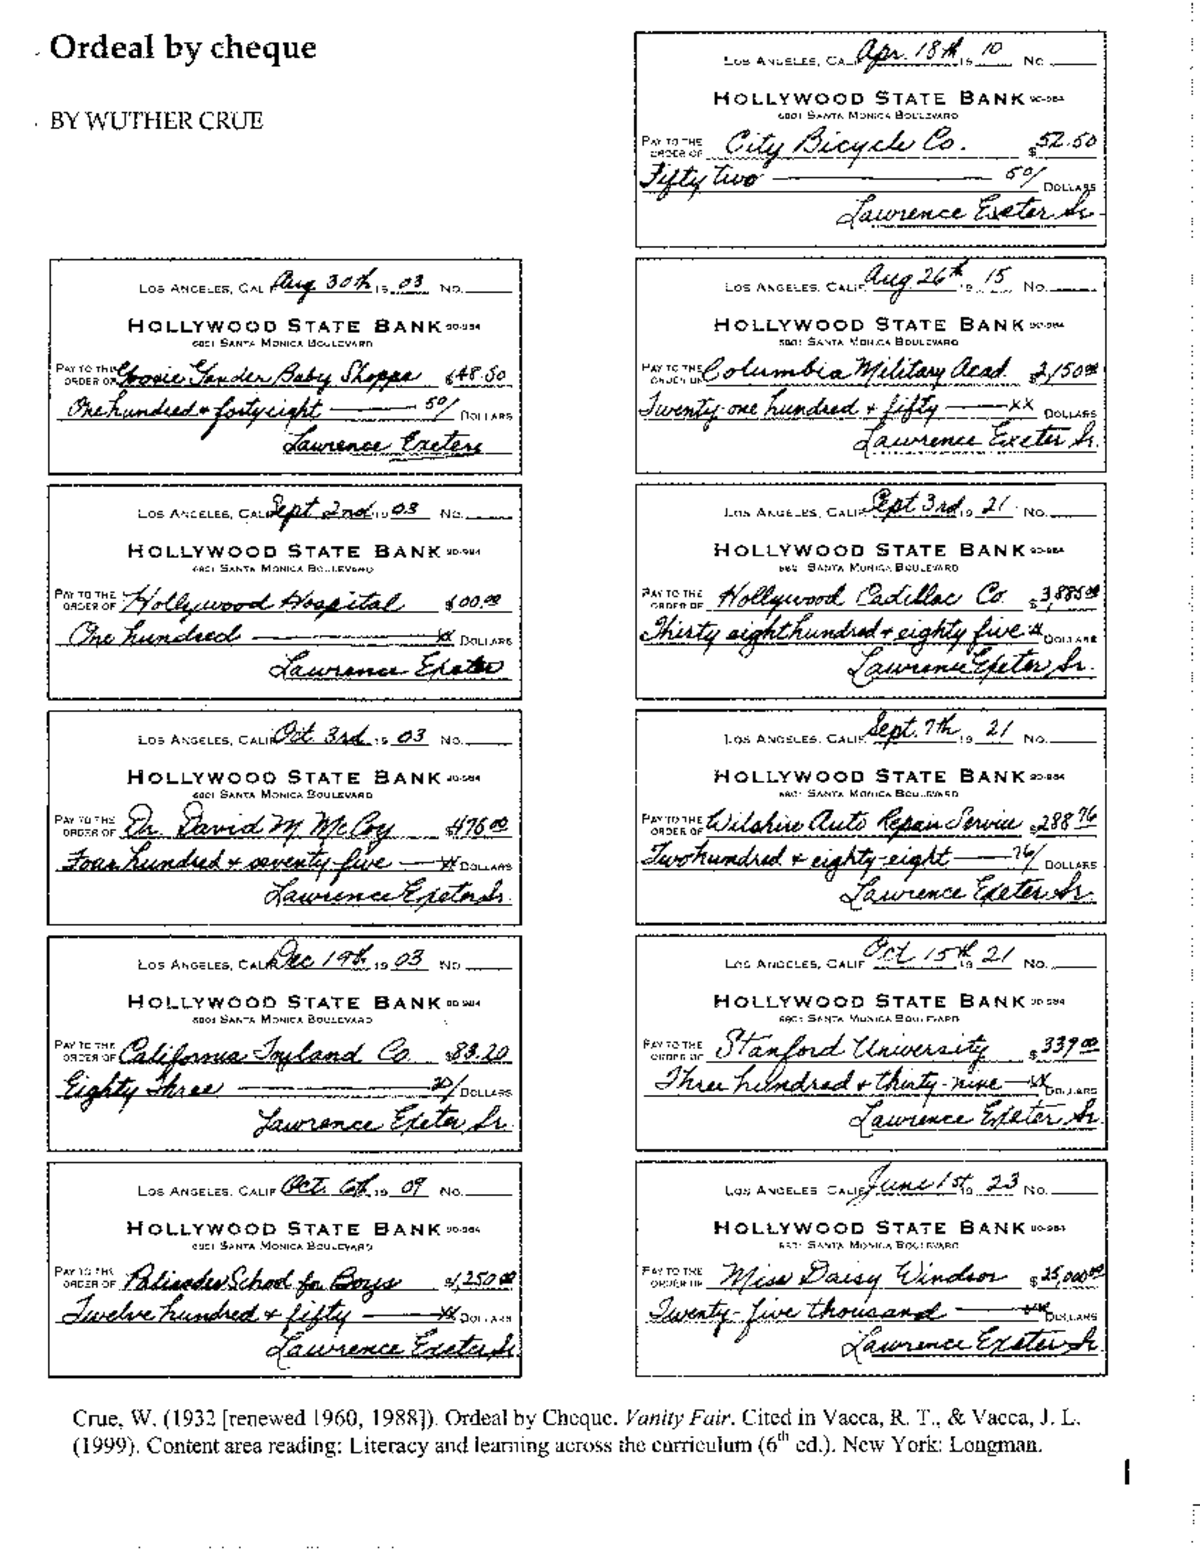 Ordeal by cheque
BY WUTHER CRUE
LOS ANGELES, CALIF. Aug 30th 19 03 No.
HOLLYWOOD STATE BANK 90-984
6801 SANTA MONICA BOULEVARD
PAY TO THE
ORDER OF Goosie Gander Baby Shoppe $148.50
One hundred & forty eight 50/ DOLLARS
Lawrence Exeter
LOS ANGELES, CALIF. Sept 2nd 19 03 No.
HOLLYWOOD STATE BANK 90-984
6801 SANTA MONICA BOULEVARD
PAY TO THE
ORDER OF Hollywood Hospital $100.00
One hundred xx DOLLARS
Lawrence Exeter
LOS ANGELES, CALIF. Oct. 3rd 19 03 No.
HOLLYWOOD STATE BANK 90-984
6801 SANTA MONICA BOULEVARD
PAY TO THE
ORDER OF Dr. David M. McCoy $475.00
Four hundred & seventy-five xx DOLLARS
Lawrence Exeter Sr.
LOS ANGELES, CALIF. Dec 19th 19 03 No.
HOLLYWOOD STATE BANK 90-984
6801 SANTA MONICA BOULEVARD
PAY TO THE
ORDER OF California Toyland Co. $83.20
Eighty Three 20/ DOLLARS
Lawrence Exeter Sr.
LOS ANGELES, CALIF. Oct. 6th 19 09 No.
HOLLYWOOD STATE BANK 90-984
6801 SANTA MONICA BOULEVARD
PAY TO THE
ORDER OF Palisades School for Boys $1,250.00
Twelve hundred & fifty xx DOLLARS
Lawrence Exeter Sr.
LOS ANGELES, CALIF. Apr. 18th 19 10 No.
HOLLYWOOD STATE BANK 90-984
6801 SANTA MONICA BOULEVARD
PAY TO THE
ORDER OF City Bicycle Co. $52.50
Fifty two 50/ DOLLARS
Lawrence Exeter Sr.
LOS ANGELES, CALIF. Aug. 26th 19 15 No.
HOLLYWOOD STATE BANK 90-984
6801 SANTA MONICA BOULEVARD
PAY TO THE
ORDER OF Columbia Military Acad. $2,150.00
Twenty-one hundred & fifty xx DOLLARS
Lawrence Exeter Sr.
LOS ANGELES, CALIF. Sept 3rd 19 21 No.
HOLLYWOOD STATE BANK 90-984
6801 SANTA MONICA BOULEVARD
PAY TO THE
ORDER OF Hollywood Cadillac Co. $3,885.00
Thirty eight hundred & eighty five xx DOLLARS
Lawrence Exeter Sr.
LOS ANGELES, CALIF. Sept. 7th 19 21 No.
HOLLYWOOD STATE BANK 90-984
6801 SANTA MONICA BOULEVARD
PAY TO THE
ORDER OF Wilshire Auto Repair Service $288.76
Two hundred & eighty-eight 76/ DOLLARS
Lawrence Exeter Sr.
LOS ANGELES, CALIF. Oct 15th 19 21 No.
HOLLYWOOD STATE BANK 90-984
6801 SANTA MONICA BOULEVARD
PAY TO THE
ORDER OF Stanford University $339.00
Three hundred & thirty-nine xx DOLLARS
Lawrence Exeter Sr.
LOS ANGELES, CALIF. June 1st 19 23 No.
HOLLYWOOD STATE BANK 90-984
6801 SANTA MONICA BOULEVARD
PAY TO THE
ORDER OF Miss Daisy Windsor $25,000.00
Twenty-five thousand xx DOLLARS
Lawrence Exeter Sr.
Crue, W. (1932 [renewed 1960, 1988]). Ordeal by Cheque. Vanity Fair. Cited in Vacca, R. T., & Vacca, J. L.
(1999). Content area reading: Literacy and learning across the curriculum (6th ed.). New York: Longman.
1